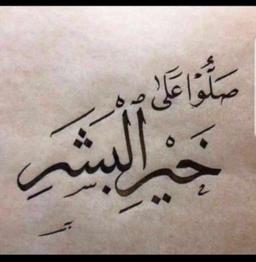 صَلُّوا عَلَىٰ
خَيْرِ الْبَشَرِ